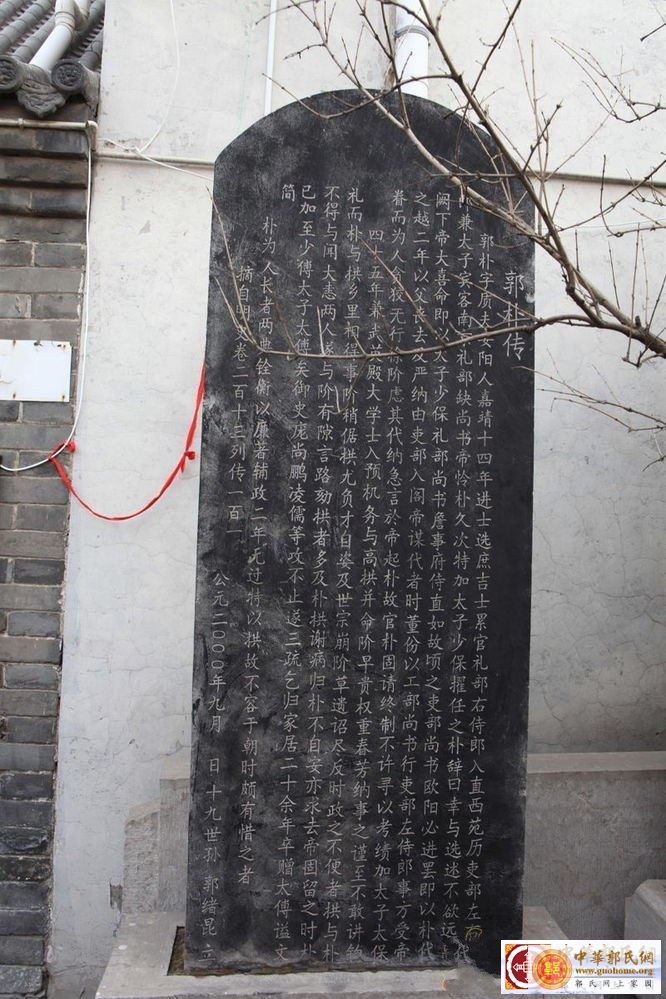 郭朴传
郭朴字质夫安阳人嘉靖十四年进士选庶吉士累官礼部右侍郎入直西苑历吏部左
兼太子宾客南京礼部缺尚书帝怜朴久次特加太子少保擢任之朴辞曰幸与选述不欲远
阙下帝大喜命即以太子少保礼部尚书詹事府侍直如故顷之吏部尚书欧阳必进罢即以朴代
之越二年以父丧去及严纳由吏部入阁帝谋代者时董份以工部尚书行吏部左侍郎事方受帝
眷而为人贪狡无行徐阶虑其代纳急言於帝起朴故官朴固请终制不许寻以考绩加太子太保
四十五年兼武英殿大学士入预机务与高拱并命阶早贵权重春芳纳事之谨至不敢讲钧
礼而朴与拱乡里相得事阶稍倨拱尤负才自姿及世宗崩阶草遗诏尽反时政之不便者拱与朴
不得与闻大恚两人遂与阶有隙言路劾拱者多及朴拱谢病归朴不自安亦求去帝固留之时朴
已加至少傅太子太傅矣御史庞尚鹏凌儒等攻不止遂三疏乞归家居二十余年卒赠太傅谥文
简
朴为人长者两典铨衡以廉著辅政二年无过特以拱故不容于朝时颇有惜之者
摘自明史卷二百十三列传一百一
公元二〇〇〇年九月 日十九世孙 郭绪昆 立
中華郭氏網
www.guohome.com
郭氏网上家园